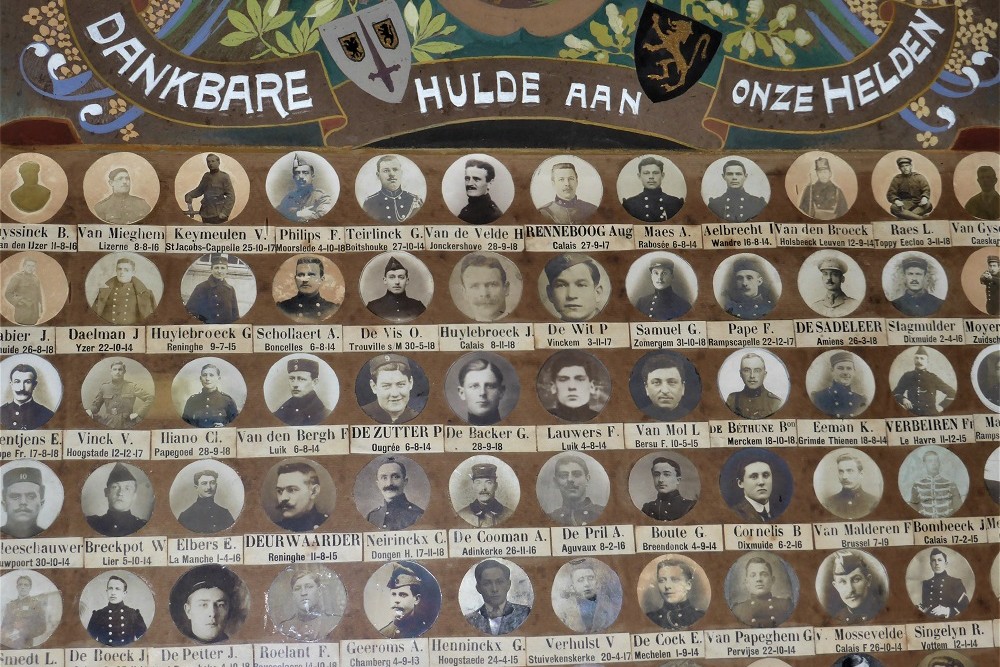 DANKBARE HULDE AAN ONZE HELDEN
Van Mighem Keymeulen V. Philips F. Teirlinck G. Van de Velde H RENNEBOOG Aug Maes A. Aelbrecht I Van den Broeck Raes L.
Lizerne 8-8-16 St Jacobs-Cappelle 25-10-17 Moorslede 4-10-18 Boitshouke 27-10-14 Jonckershove 28-9-18 Calais 27-9-17 Rabosée 6-8-14 Wandre 16-8-14. Holsbeeck Leuven 12-9-14 Toppy Eecloo 3-11-18
Daelman J Huylebroeck G Schollaert A. De Vis O. Huylebroeck J. De Wit P Samuel G. Pape F. DE SADELEER Stagmulder
26-8-18 Yzer 22-10-14 Reninghe 9-7-15 Boncelles 6-8-14 Trouville s/M 30-5-18 Calais 8-11-18 Vinckem 3-11-17 Zomergem 31-10-18 Rapscappelle 22-12-17 Amiens 26-3-18 Dixmuide 2-4-16
Vinck V. Iliano Cl. Van den Bergh F DE ZUTTER P De Backer G. Lauwers F. Van Mol L DE BÉTHUNE Bon Eeman K. VERBEIREN Fr
17-8-18 Hoogstade 12-12-17 Papegoed 28-9-18 Luik 6-8-14 Ougrée 6-8-14 Merckem 28-9-18 Luik 4-8-14 Bersu F. 10-5-15 Merckem 18-10-18 Grimde Thienen 18-8-14 Le Havre 11-12-15
Breckpot W Elbers E. DEURWAARDER Neirinckx C. De Cooman A. De Pril A. Boute G. Cornelis B Van Malderen F Bombeeck J
30-10-14 Lier 5-10-14 La Manche 1-4-16 Reninghe 11-8-15 Dongen H. 17-11-18 Adinkerke 26-11-16 Aguvaux 8-2-16 Breendonck 4-9-14 Dixmuide 6-2-16 Brussel 7-19 Calais 17-2-15
De Boeck J. De Petter J. Roelant F. Geeroms A. Henninckx G. Verhulst V De Cock E. Van Papeghem G v. Mossevelde Singelyn R.
Chamberg 4-9-13 Hoogstaede 24-4-15 Stuivekenskerke 20-4-17 Mechelen 1-9-14 Pervijse 22-10-14 Calais F 26-10-14 Vottem 12-1-14